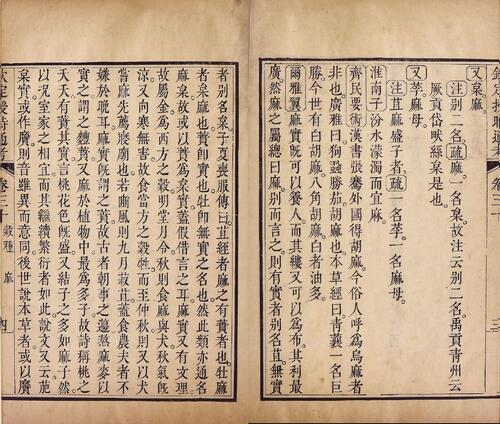 又枲麻
注别二名疏麻一名枲故注云别二名禹貢青州云
厥貢岱畎絲枲是也
又莩麻母
注苴麻盛子者疏一名莩一名麻母
淮南子汾水濛濁而宜麻
齊民要術漢書張騫外國得胡麻今俗人呼為烏麻者
非也廣雅曰狗蝨勝茄胡麻也本草經曰青蘘一名巨
勝今世有白胡麻八角胡麻白者油多
爾雅翼麻實既可以養人而其縷又可以為布其利最
廣然麻之屬總曰麻别而言之則有實者别名苴無實
者别名枲子夏喪服傳曰苴絰者麻之有蕡者也牡麻
者枲麻也蕡即實也牡即無實之名也然此類亦通名
麻枲故或以蕡為枲實蓋假借言之耳麻實又有文理
故屬金為西方之穀明堂月令秋則食麻與犬秋氣既
涼又向寒無害故食當方之穀牲而至仲秋則又以犬
嘗麻先薦寢廟也若豳風則九月叔苴蓋食農夫者不
嫌於晚耳麻實既謂之蕡故古者朝事之籩熬麻麥以
實之謂之麷蕡又麻於植物中最為多子故詩稱桃之
夭夭有蕡其實言桃花色既盛又結子之多如麻子然
以况室家之相宜而其繼續繁衍者如此說文又云萉
枲實或作黂則音雖異而意同後世說本草者或以黂
欽定授時通考 卷三十 穀種 麻 四